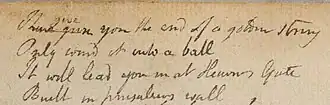 give you the end of a golden string
Only wind it into a ball
It will lead you in at Heavens Gate
Built in Jerusalems wall